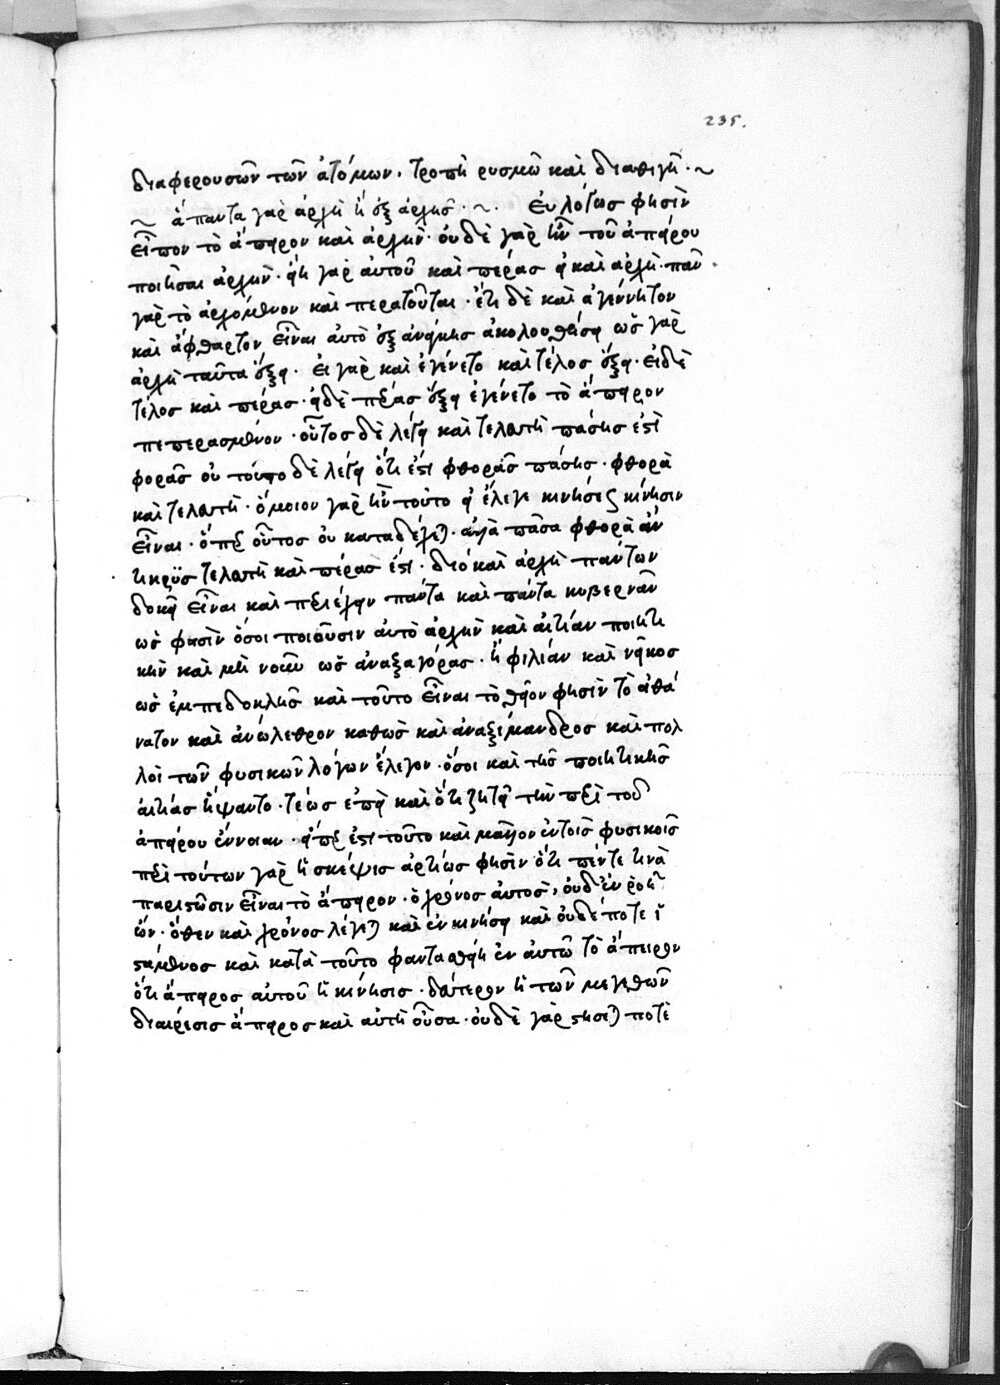 235.
διαφερουσῶν τῶν ἀτόμων, τροπῆ ρυσμῶ καὶ διαθιγῆ· ~
~ ἅπαντα γὰρ ἀρχὴ ἢ ἐξ ἀρχῆς· ~. Εὐλόγως φησὶν
εἶπον τὸ ἄπειρον καὶ ἀρχὴν· οὐδὲ γὰρ ἦν τοῦ ἀπείρου
ποιῆσαι ἀρχὴν· εἴη γὰρ αὐτοῦ καὶ πέρας εἰ καὶ ἀρχὴ· πᾶν
γὰρ τὸ ἀρχόμενον καὶ περατοῦται· ἔτι δὲ καὶ ἀγέννητον
καὶ ἄφθαρτον εἶναι αὐτὸ ἐξ ἀνάγκης ἀκολουθήσει ὡς γὰρ
ἀρχὴ ταῦτα ἕξει· εἰ γὰρ καὶ ἐγένετο καὶ τέλος ἕξει· εἰ δὲ
τέλος καὶ πέρας· εἰ δὲ πέρας ἕξει ἐγένετο τὸ ἄπειρον
πεπερασμένον· οὗτος δὲ λέγει καὶ τελευτὴ πάσης ἐστὶ
φορᾶς οὐ τοῦτο δὲ λέγει ὅτι ἐστὶ φθορᾶς πάσης· φθορὰ
καὶ τελευτὴ· ὅμοιον γὰρ ἦν τοῦτο εἰ ἔλεγε κινήσεως κίνησιν
εἶναι· ὅπερ οὗτος οὐ καταδέχεται· ἀλλὰ πᾶσα φθορὰ ἀν
τικρὺς τελευτὴ καὶ πέρας ἐστὶ· διὸ καὶ ἀρχὴ πάντων
δοκεῖ εἶναι καὶ περιέχειν πάντα καὶ πάντα κυβερνᾶν
ὡς φασὶν ὅσοι ποιοῦσιν αὐτὸ ἀρχὴν καὶ αἰτίαν ποιητι
κὴν καὶ μὴ νοῦν ὡς ἀναξαγόρας· ἢ φιλίαν καὶ νεῖκος
ὡς ἐμπεδοκλῆς καὶ τοῦτο εἶναι τὸ θεῖον φησὶν τὸ ἀθά
νατον καὶ ἀνώλεθρον καθὼς καὶ ἀναξίμανδρος καὶ πολ
λοὶ τῶν φυσικῶν λόγων ἔλεγον· ὅσοι καὶ τῆς ποιητικῆς
αἰτίας ἥψαντο· τέως ἐπεὶ καὶ ὅτι ζητεῖ τὴν περὶ τοῦ
ἀπείρου ἔννοιαν· εἴπερ ἐστὶ τοῦτο καὶ μᾶλλον ἐν τοῖς φυσικοῖς
περὶ τούτων γὰρ ἡ σκέψις ἀρτίως φησὶν ὅτι πέντε τινὰ
παριστῶσιν εἶναι τὸ ἄπειρον· ὁ χρόνος αὐτὸς, οὐδὲ ἐν ροῆ
ὤν· ὅθεν καὶ χρόνος λέγεται καὶ ἐν κινήσει καὶ οὐδέποτε ἱ
στάμενος καὶ κατὰ τοῦτο φαντασθείη ἐν αὐτῶ τὸ ἄπειρον
ὅτι ἄπειρος αὐτοῦ ἡ κίνησις· δεύτερον ἡ τῶν μεγεθῶν
διαίρεσις ἄπειρος καὶ αὐτὴ οὖσα· οὐδὲ γὰρ στήσεται ποτὲ